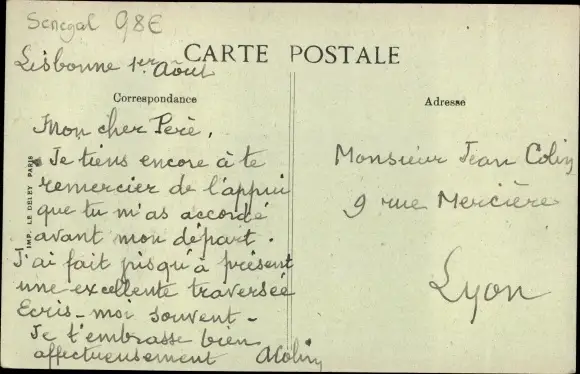 Senegal 98E
CARTE POSTALE
Lisbonne 1er Août
Correspondance
Mon cher Père,
Je tiens encore à te
remercier de l'appui
que tu m'as accordé
avant mon départ.
J'ai fait jusqu'à présent
une excellente traversée
Ecris-moi souvent-
Je t'embrasse bien
affectueusement AColin
Adresse
Monsieur Jean Colin
9 rue Mercière
Lyon
IMP. LE DELEY PARIS